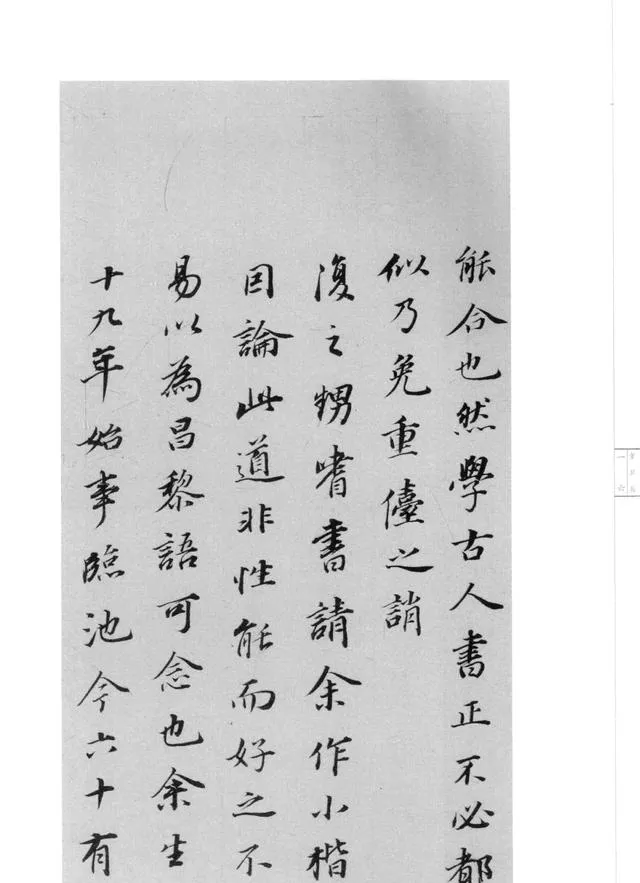 能合也然學古人書正不必都
似乃免重儓之誚
復之甥嗜書請余作小楷
因論此道非性能而好之不
易以為昌黎語可念也余生
十九年始事臨池今六十有